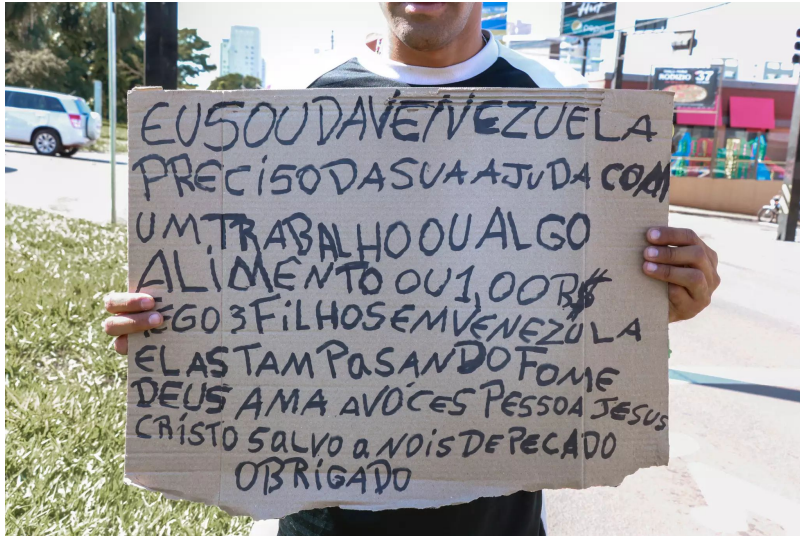 EU SOU DA VENEZUELA
PRECISO DA SUA AJUDA COM
UM TRABALHO OU ALGO
ALIMENTO OU 1,00 R$
TEGO 3 FILHOS EM VENEZULA
ELAS TAM PASANDO FOME
DEUS AMA A VOCES PESSOA JESUS
CRISTO SALVO A NOIS DE PECADO
OBRIGADO
Hut
pepsi
RODIZIO 37